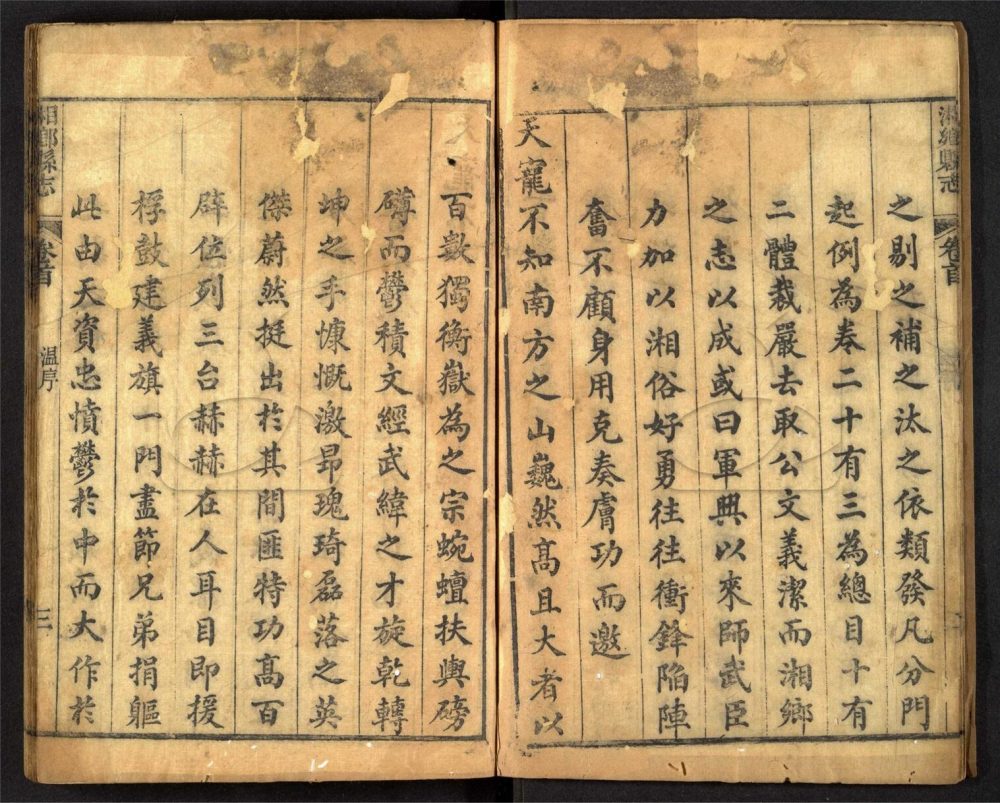 湘鄉縣志
卷首
之剔之補之汰之依類發凡分門
起例為卷二十有三為總目十有
二體裁嚴去取公文義潔而湘鄉
之志以成或曰軍興以來師武臣
力加以湘俗好勇往往衝鋒陷陣
奮不顧身用克奏膚功而邀
天寵不知南方之山巍然高且大者以
百數獨衡嶽為之宗蜿蟺扶輿磅
礴而鬱積文經武緯之才旋乾轉
坤之手慷慨激昂瑰琦磊落之英
傑蔚然挺出於其間匪特功高百
辟位列三台赫赫在人耳目即援
桴鼓建義旗一門盡節兄弟捐軀
此由天資忠憤鬱於中而大作於
湘鄉縣志
卷首
溫序
三